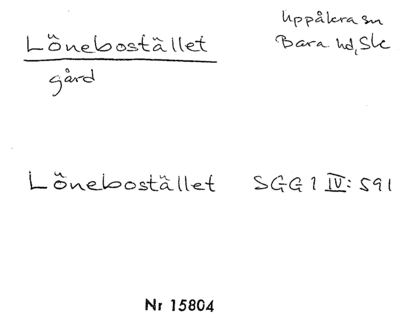 Lönebostället
gård
Uppåkra sn
Bara hd, Sk
Lönebostället SGG 1 IV: 591
Nr 15804